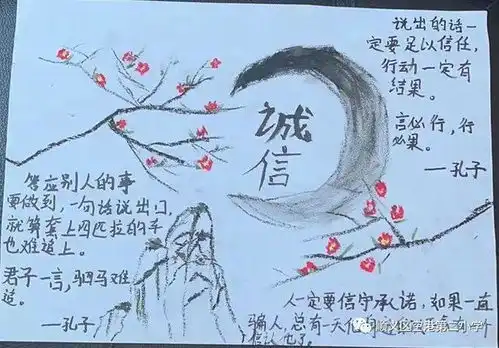 说出的话一
定要足以信任,
行动一定有
结果。
言必行，行
必果。
—孔子
诚
信
答应别人的事
要做到，一句话说出口,
就算套上四匹拉的车
也难追上。
君子一言，驷马难
追。
—孔子
人一定要信守承诺，如果一直
骗人，总有一天他
信认也了。
顺义区空港第二小学